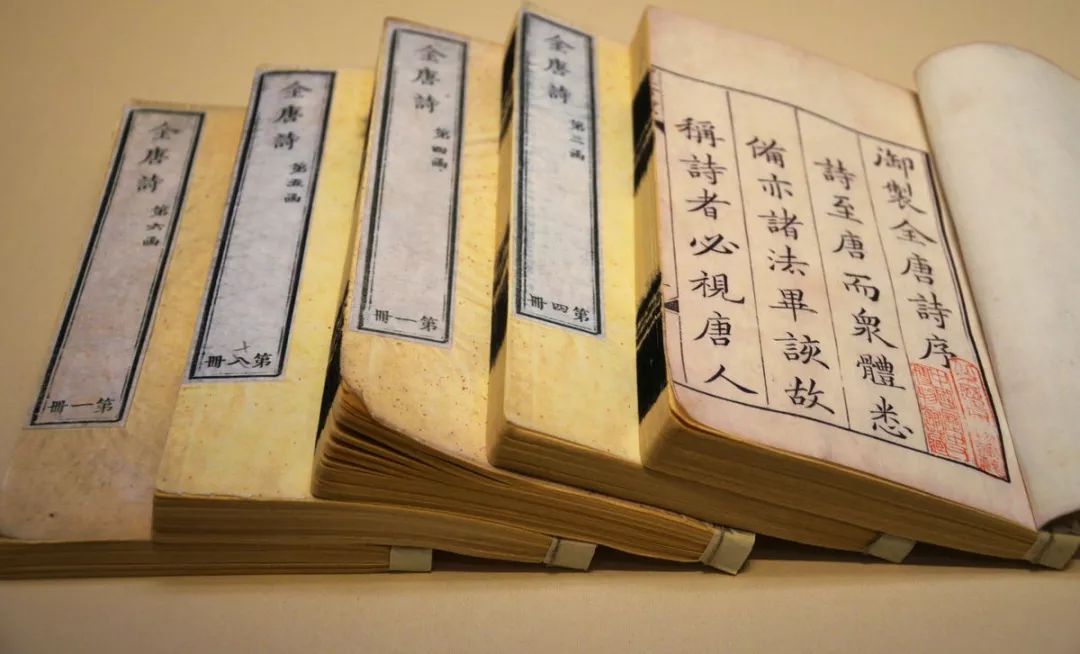 御製全唐詩序
詩至唐而衆體悉
備亦諸法畢該故
稱詩者必視唐人
全唐詩 第三函
第四冊
全唐詩 第四函
第一冊
全唐詩 第五函
第八冊
全唐詩 第六函
第一冊